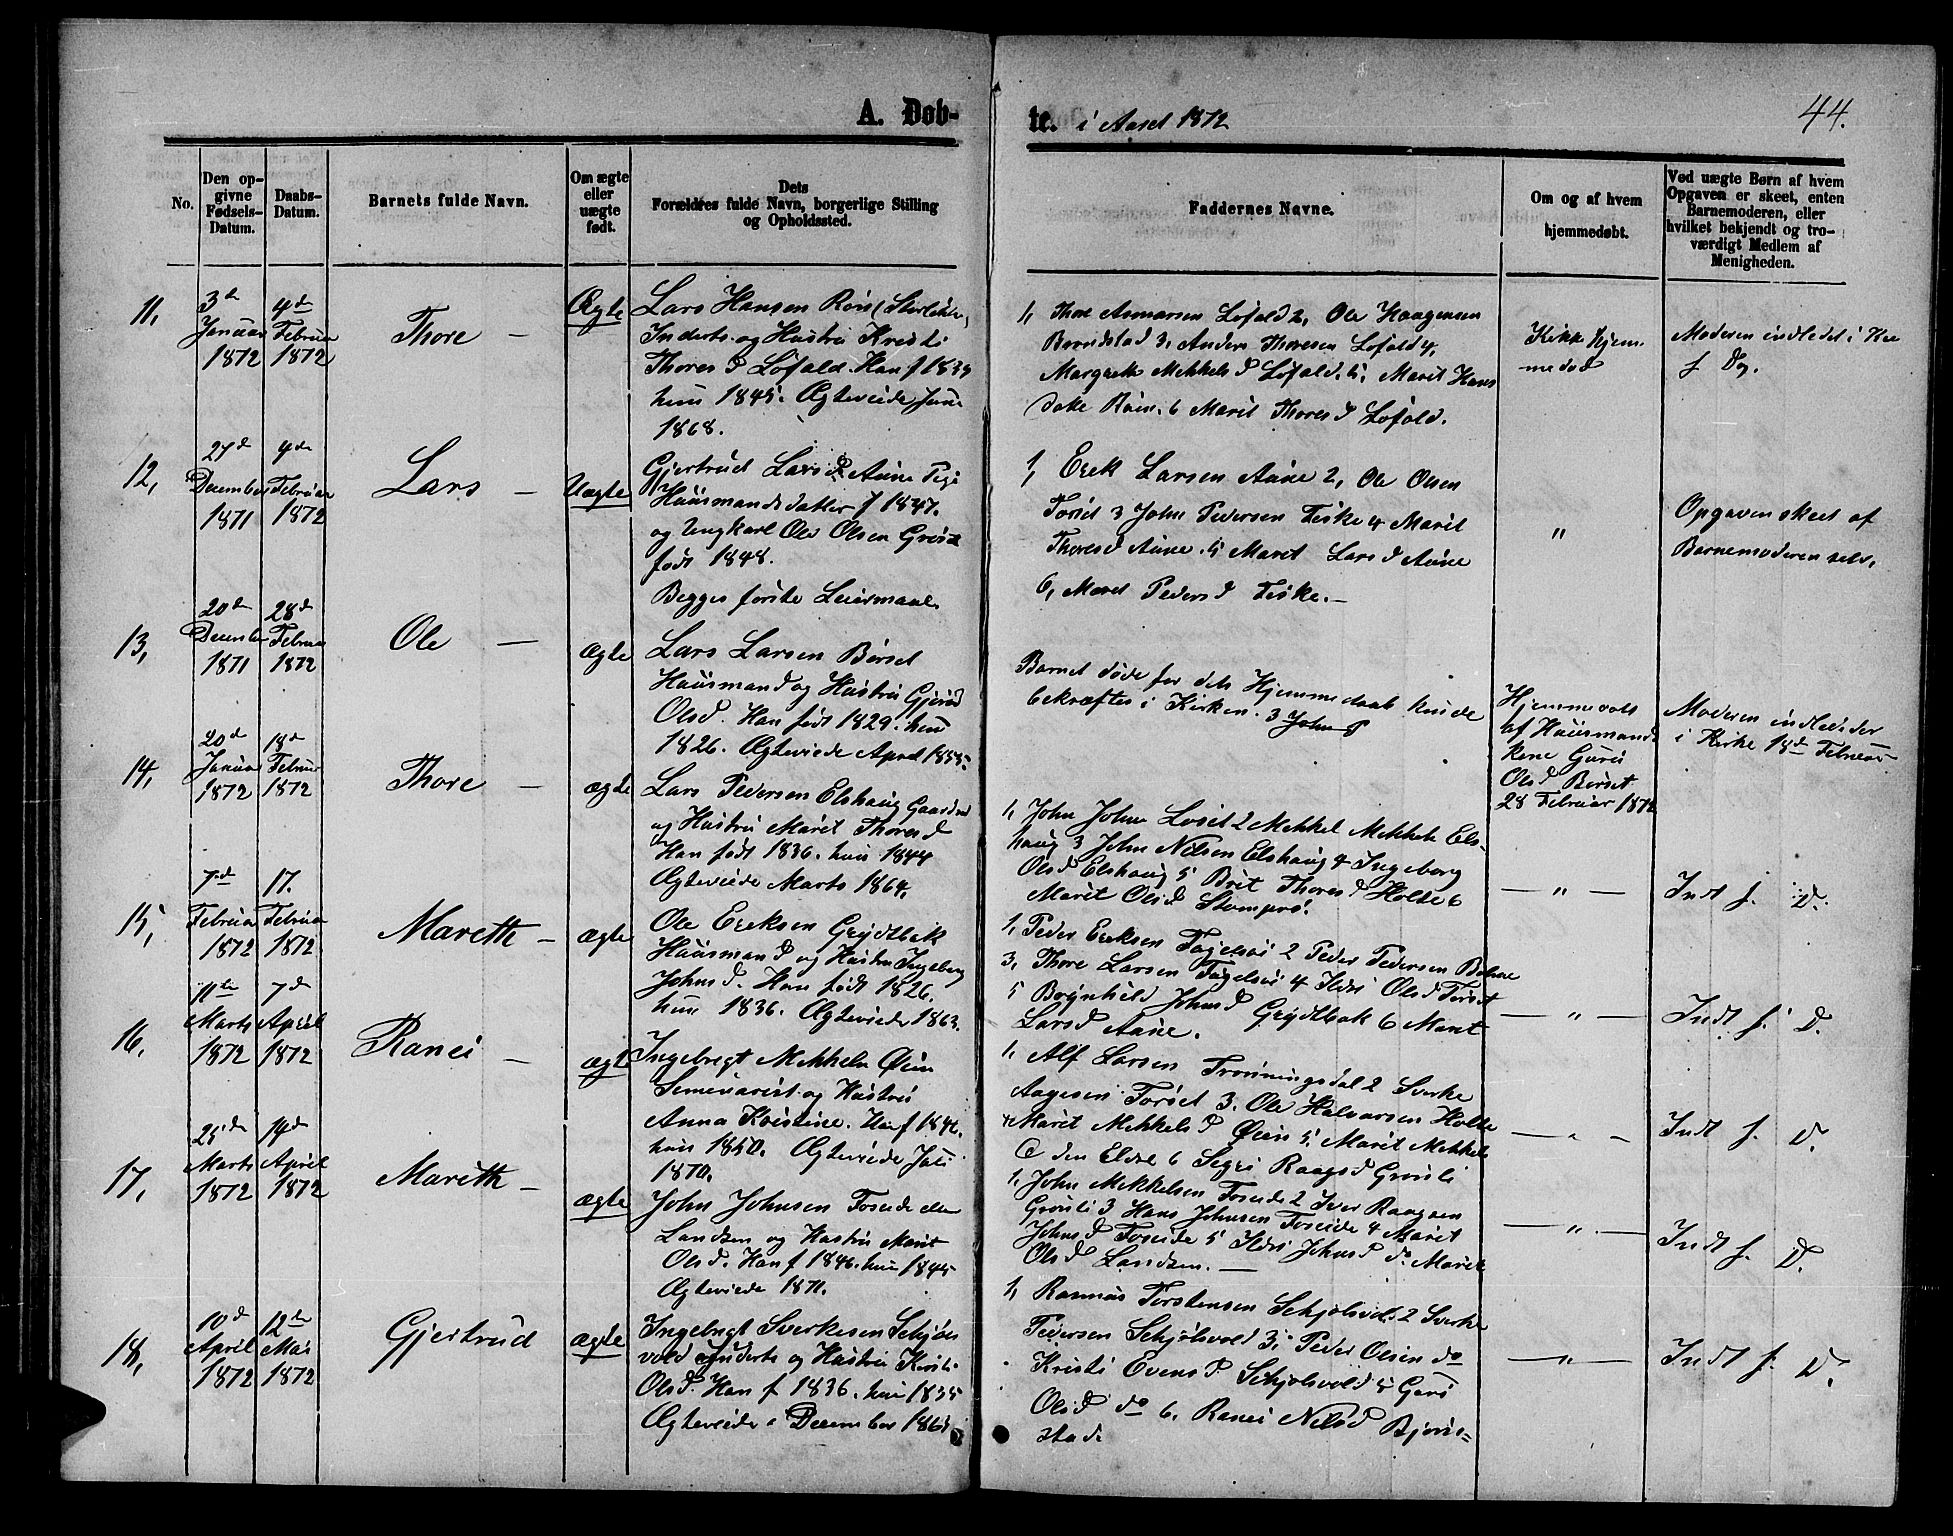 A. Døb-
te. i Aaret 1872
44.
No.
Den opgivne Fødsels-Datum.
Daabs-Datum.
Barnets fulde Navn.
Om ægte eller uægte født.
Dets
Forældres fulde Navn, borgerlige Stilling
og Opholdssted.
Faddernes Navne.
Om og af hvem
hjemmedøbt.
Ved uægte Børn af hvem
Opgaven er skeet, enten
Barnemoderen, eller
hvilket bekjendt og tro-
værdigt Medlem af
Menigheden.
11, 3de Januar 1872
4de Februar 1872
Thore —
Ægte
Lars Hansen Røis
Inderts. og Hustru Kristi
Thores D Løfald. Han f 1839
hun 1845. Ægteviede Juni
1868.
1, Thore Asmarsen Løfald 2, Ole Haagensen
Brendstad 3, Anders Thoresen Løfald 4,
Margrete Mekkels D Løfald. 5, Marit Hans
6 Marit Thores D Løfold.
Ikke Hjem-
medøbt
Moderen indledet i
f Dg.
12, 27d December 1871
4de Februar 1872
Lars —
Uægte
Gjertrud Lars D Aune Pige
Huusmandsdatter f 1847.
og Ungkarl Ole Olsen
født 1848.
Begges første Leiermaal.
1, Erek Larsen Aune 2, Ole Olsen
Torset 3 John Pedersen Fiske 4 Marit
Thores D Aune. 5 Maret Lars D Aune
6, Maret Peders D Fiske. —
"
Opgaven skeet af
Barnemoderen selv.
13, 20de December 1871
28d Februar 1872
Ole —
ægte
Lars Larsen Børset
Huusmand og Hustru
Olsd. Han født 1829. hun
1826. Ægteviede April 1855.
Barnet døde før dets Hjemmedaab kunde
bekræftes i Kirken. 3 John P
Hjemmedøbt
af Huusmands
Kone Guru
Ols D Børset
28 Februar 1872
Moderen indleder
i Kirke 18de Februar
14, 20d Januar 1872
18d Februar 1872
Thore —
ægte
Lars Pedersen Elshaug Gaardmd
og Hustru Maret Thores D
Han født 1836. hun 1844
Ægteviede Marts 1864.
1, John Johns 2 Mekkel Mekkels Els-
haug 3 John Nilsen Elshaug 4 Ingeborg
Ols D Elshaug 5 Brit Thores D Holte 6
Marit Ols D Stomprø.
— " —
Indt f. D.
15, 7de Februar 1872
17. Februar 1872
Mareth —
ægte
Ole Ereksen Grydtbak
Huusmand og Hustru Ingeborg
Johns D. Han født 1826.
hun 1836. Ægteviede 1863.
1, Peder Ereksen 2 Peder Pedersen
3, Thore Larsen 4 Ildri Ols D Torset
5 Brynhild Johns D Grydtbak 6 Maret
Lars D Aune.
— " —
Indt f. D.
16, 11te Marts 1872
7de April 1872
Ranei —
ægte
Ingebregt Mekkelsn Øien
Seminarist og Hustru
Anna Kristine. Han f 1842.
hun 1850. Ægteviede Juli
1870.
1, Alf Larsen Tronningsdal 2 Sverke
Aagesen Torset 3. Ole Halvarsen Holte
4 Marit Mekkels D Øien 5. Marit Mekkels
D den Eldre 6 Segri Raags D Grønli
— " —
Indt f. D.
17, 25de Marts 1872
14de April 1872
Mareth —
ægte
John Johnsen Foseide eller
Landsem og Hustru Marit
Olsd. Han f 1846. hun 1845
Ægteviede 1871.
1, John Mekkelsen Foseide 2 Iver Raagsen
Grønli 3 Hans Johnsen Foseide 4 Maret
Johns D Foseide 5 Ildri Johns D do Marit
Ols D Landsem. —
— " —
Indt f. D.
18, 10de April 1872
12te Mai 1872
Gjertrud
ægte
Ingebrigt Sverkesen Schjøls
vold Inderts og Hustru Kristi
Ols D. Han f 1836. hun 1835
Ægteviede i December 1861
1, Rasmus Torstensen Schjølsvold 2 Sverke
Pedersen Schjølsvold 3, Peder Olsen do
Kristi Evens D Schjølsvold 5 Guro
Ols D do 6. Ranei Nels D Bjørn=
stad
— " —
Indt f. D.